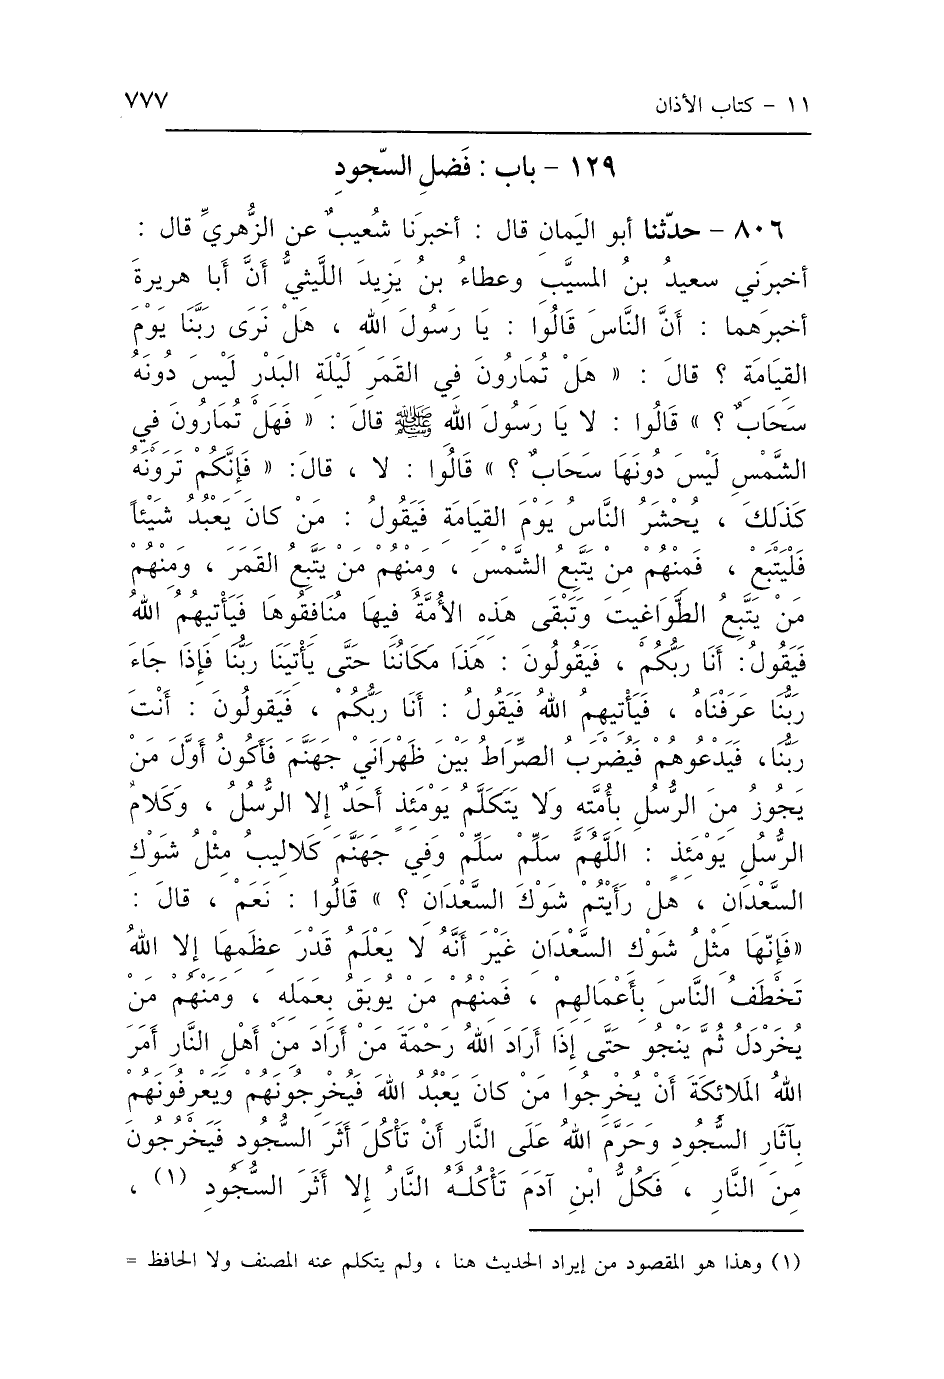 ١١ - كتاب الأذان ٧٧٧
١٢٩ - باب : فَضلِ السّجودِ
٨٠٦ - حدّثنا أبو اليَمان قال : أخبرَنا شُعيبٌ عن الزُّهريِّ قال :
أخبرَني سعيدُ بنُ المسيَّبِ وعطاءُ بنُ يَزيدَ اللَّيثيُّ أنَّ أَبا هريرةَ
أخبرَهما : أنَّ النَّاسَ قَالُوا : يَا رَسُولَ اللهِ ، هَلْ نَرَى رَبَّنَا يَوْمَ
القِيَامَةِ ؟ قالَ : « هَلْ تُمَارُونَ فِي القَمَرِ لَيْلَةَ البَدْرِ لَيْسَ دُونَهُ
سَحَابٌ ؟ » قَالُوا : لا يَا رَسُولَ اللهِ ﷺ قالَ : « فَهَلْ تُمَارُونَ فِي
الشَّمْسِ لَيْسَ دُونَهَا سَحَابٌ ؟ » قَالُوا : لا ، قالَ: « فَإِنَّكُمْ تَرَوْنَهُ
كَذَلِكَ ، يُحْشَرُ النَّاسُ يَوْمَ القِيَامَةِ فَيَقُولُ : مَنْ كانَ يَعْبُدُ شَيْئاً
فَلْيَتَّبِعْ ، فَمِنْهُمْ مِنْ يَتَّبِعُ الشَّمْسَ ، وَمِنْهُمْ مَنْ يَتَّبِعُ القَمَرَ ، وَمِنْهُمْ
مَنْ يَتَّبِعُ الطَّوَاغِيتَ وَتَبْقَى هَذِهِ الأُمَّةُ فِيهَا مُنَافِقُوهَا فَيَأْتِيهِمُ اللهُ
فَيَقُولُ: أَنَا رَبُّكُمْ ، فَيَقُولُونَ : هَذَا مَكَانُنَا حَتَّى يَأْتِيَنَا رَبُّنَا فَإِذَا جاءَ
رَبُّنَا عَرَفْنَاهُ ، فَيَأْتِيهِمُ اللهُ فَيَقُولُ : أَنَا رَبُّكُمْ ، فَيَقولُونَ : أَنْتَ
رَبُّنَا، فَيَدْعُوهُمْ فَيُضْرَبُ الصِّرَاطُ بَيْنَ ظَهْرَانَيْ جَهَنَّمَ فَأَكُونُ أَوَّلَ مَنْ
يَجُوزُ مِنَ الرُّسُلِ بِأُمَّتِهِ وَلا يَتَكَلَّمُ يَوْمَئِذٍ أَحَدٌ إِلا الرُّسُلُ ، وَكَلامُ
الرُّسُلِ يَوْمَئِذٍ : اللَّهُمَّ سَلِّمْ سَلِّمْ وَفِي جَهَنَّمَ كَلالِيبُ مِثْلُ شَوْكِ
السَّعْدَانِ ، هَلْ رَأَيْتُمْ شَوْكَ السَّعْدَانِ ؟ » قَالُوا : نَعَمْ ، قالَ :
«فَإِنّهَا مِثْلُ شَوْكِ السَّعْدَانِ غَيْرَ أَنَّهُ لا يَعْلَمُ قَدْرَ عِظَمِهَا إِلا اللهُ
تَخْطَفُ النَّاسَ بِأَعْمَالِهِمْ ، فَمِنْهُمْ مَنْ يُوبَقُ بِعَمَلِهِ ، وَمِنْهُمْ مَنْ
يُخَرْدَلُ ثُمَّ يَنْجُو حَتَّى إِذَا أَرَادَ اللهُ رَحْمَةَ مَنْ أَرَادَ مِنْ أَهْلِ النَّارِ أَمَرَ
اللهُ المَلائِكَةَ أَنْ يُخْرِجُوا مَنْ كانَ يَعْبُدُ اللهَ فَيُخْرِجُونَهُمْ وَيَعْرِفُونَهُمْ
بِآثَارِ السُّجُودِ وَحَرَّمَ اللهُ عَلَى النَّارِ أَنْ تَأْكُلَ أَثَرَ السُّجُودِ فَيَخْرُجُونَ
مِنَ النَّارِ ، فَكُلُّ ابْنِ آدَمَ تَأْكُلُهُ النَّارُ إِلا أَثَرَ السُّجُودِ (١) ،
(١) وهذا هو المقصود من إيراد الحديث هنا ، ولم يتكلم عنه المصنف ولا الحافظ =